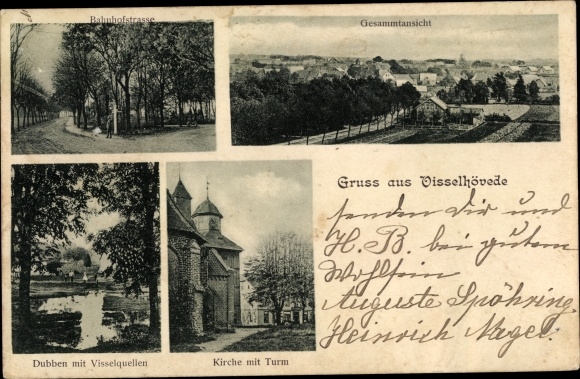 Bahnhofstrasse
Gesammtansicht
Gruss aus Visselhövede
senden Dir und
H. B. bei gutem
Wohlsein
Auguste Spöhring.
Heinrich Nagel.
Dubben mit Visselquellen
Kirche mit Turm